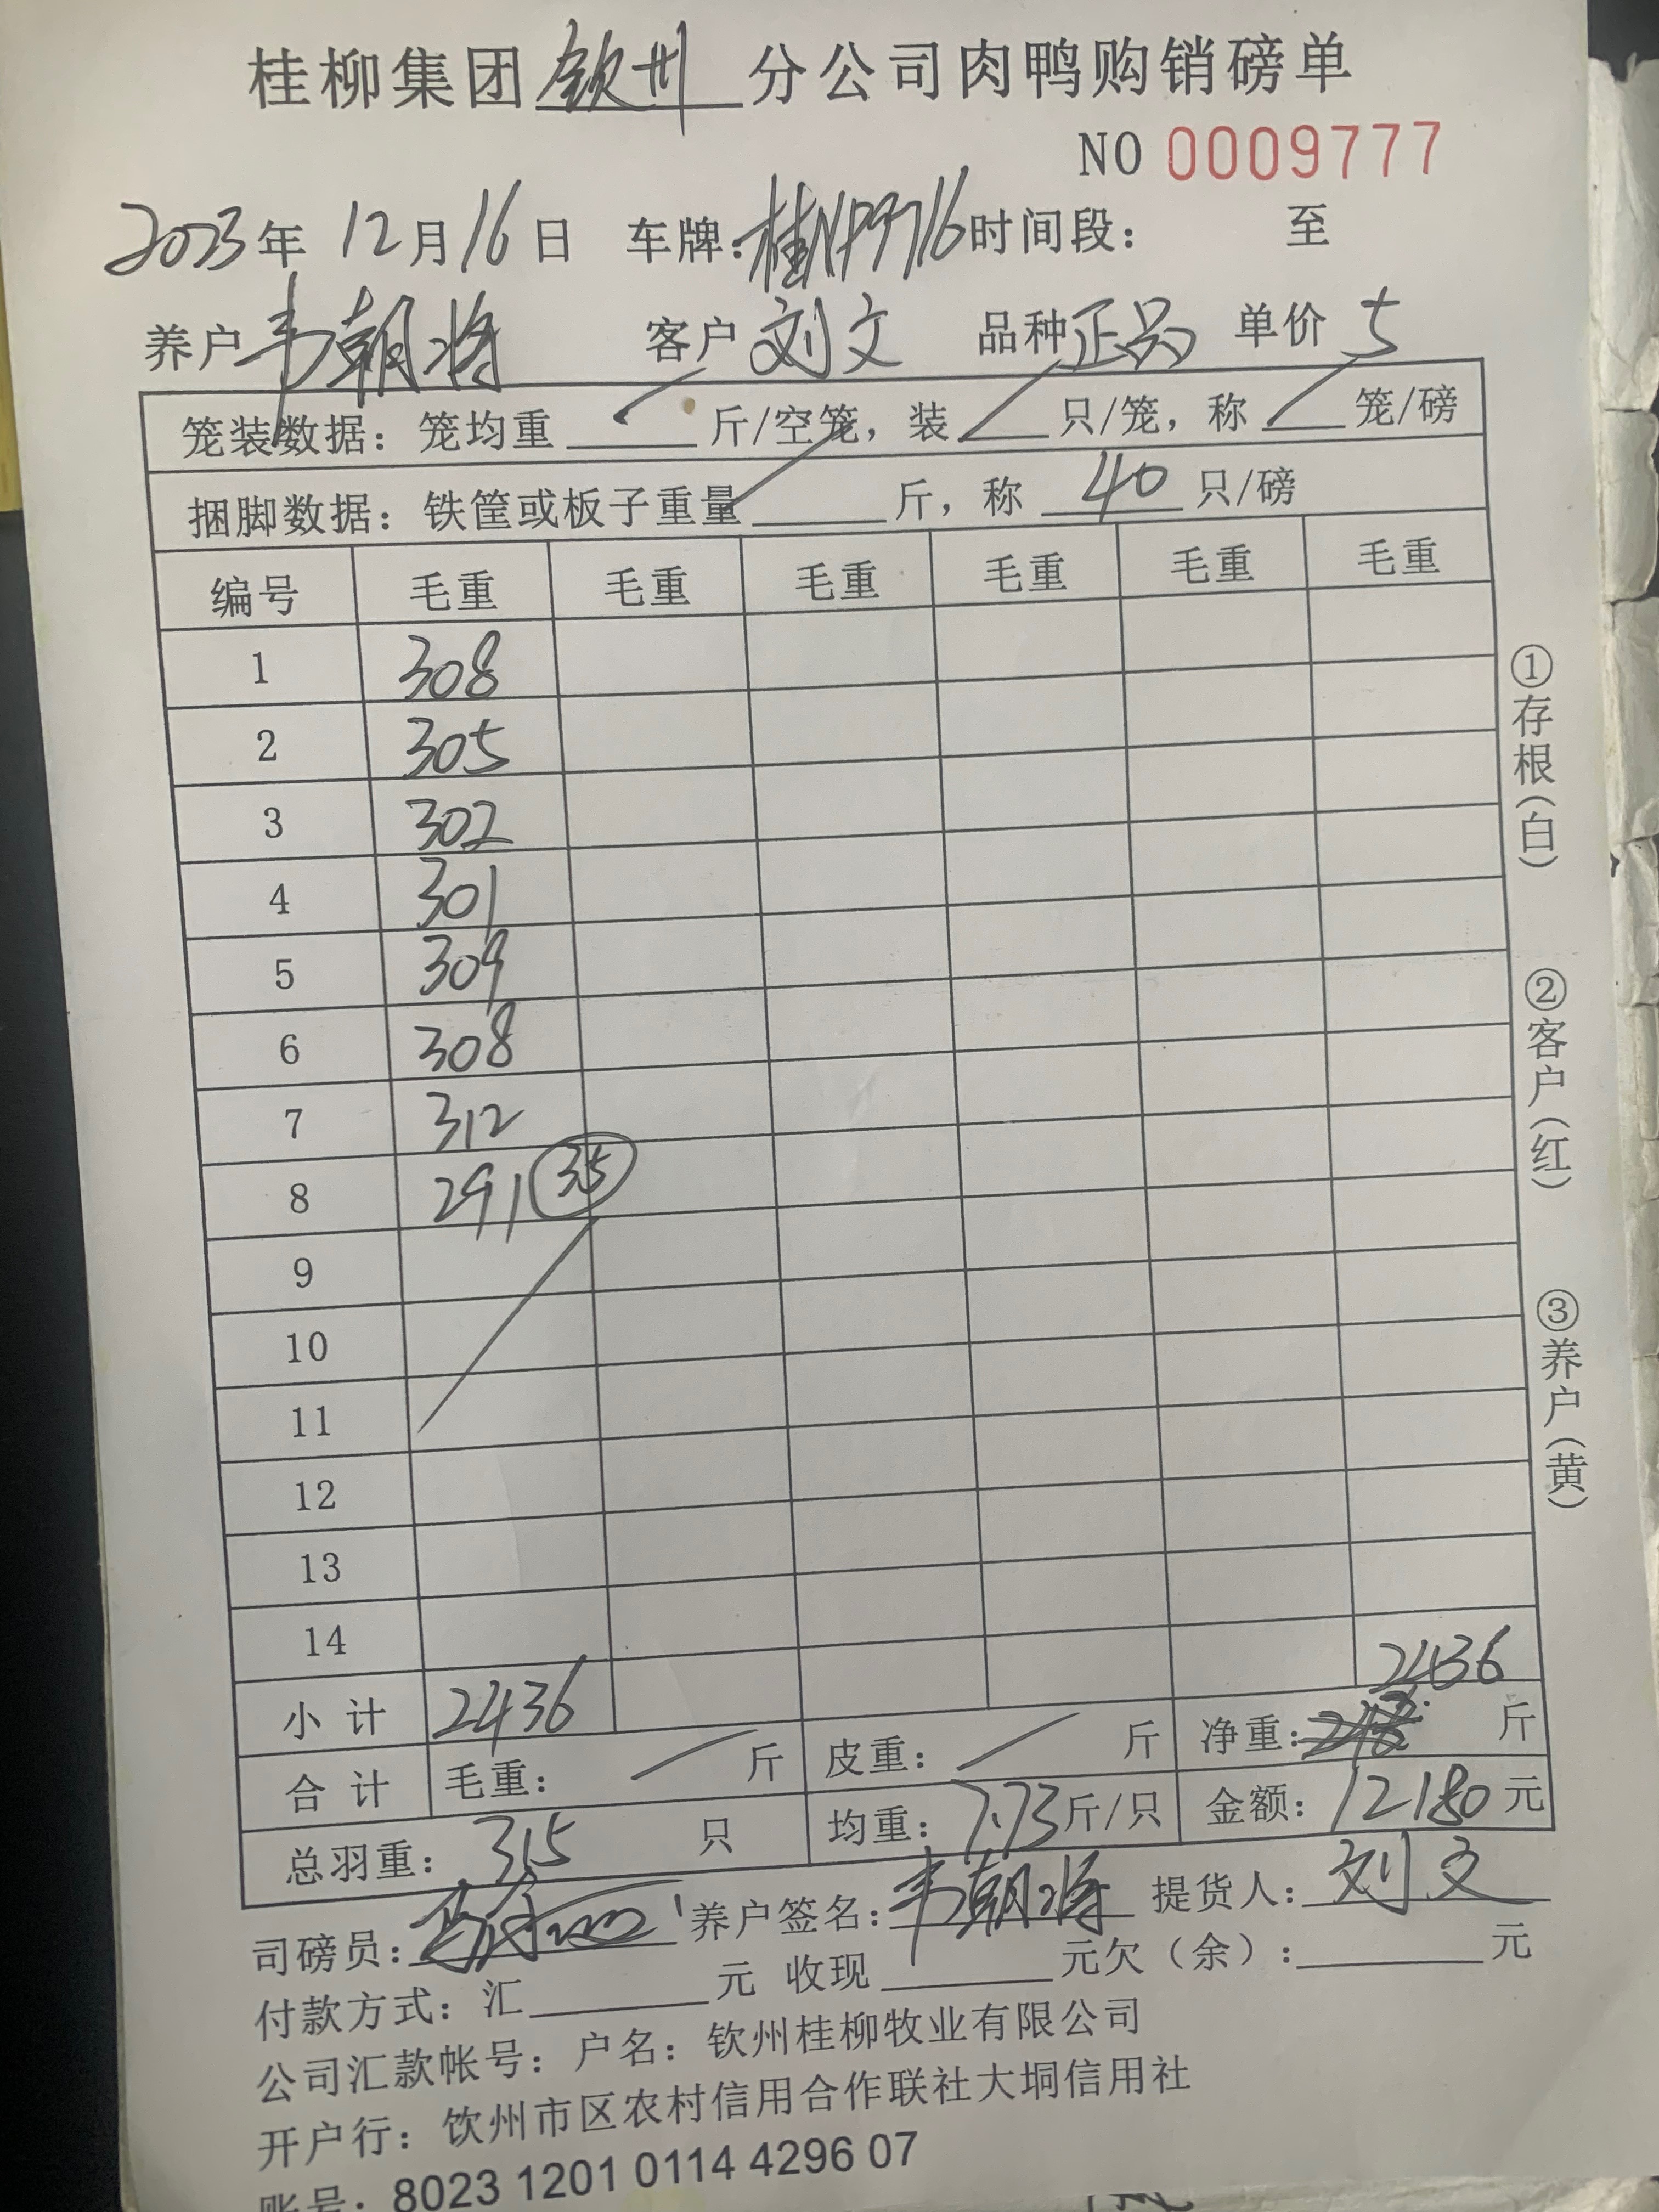 桂柳集团钦州分公司肉鸭购销磅单
NO 0009777
2023年 12月16日 车牌:桂NP9716时间段: 至
养户韦朝将 客户刘文 品种正品 单价5
笼装数据: 笼均重 / 斤/空笼, 装 / 只/笼, 称 / 笼/磅
捆脚数据: 铁筐或板子重量 / 斤, 称 40 只/磅
编号 毛重 毛重 毛重 毛重 毛重 毛重
1 308
2 305
3 302
4 301
5 309
6 308
7 312
8 291 35
9
10
11
12
13
14
小计 2436 2436
合计 毛重: / 斤 皮重: / 斤 净重: 斤
总羽重: 315 只 均重: 7.73斤/只 金额: 12180元
司磅员: 养户签名:韦朝将 提货人:刘文
付款方式: 汇 元 收现 元欠(余): 元
公司汇款帐号: 户名: 钦州桂柳牧业有限公司
开户行: 钦州市区农村信用合作联社大垌信用社
账号: 8023 1201 0114 4296 07
①存根(白)
②客户(红)
③养户(黄)